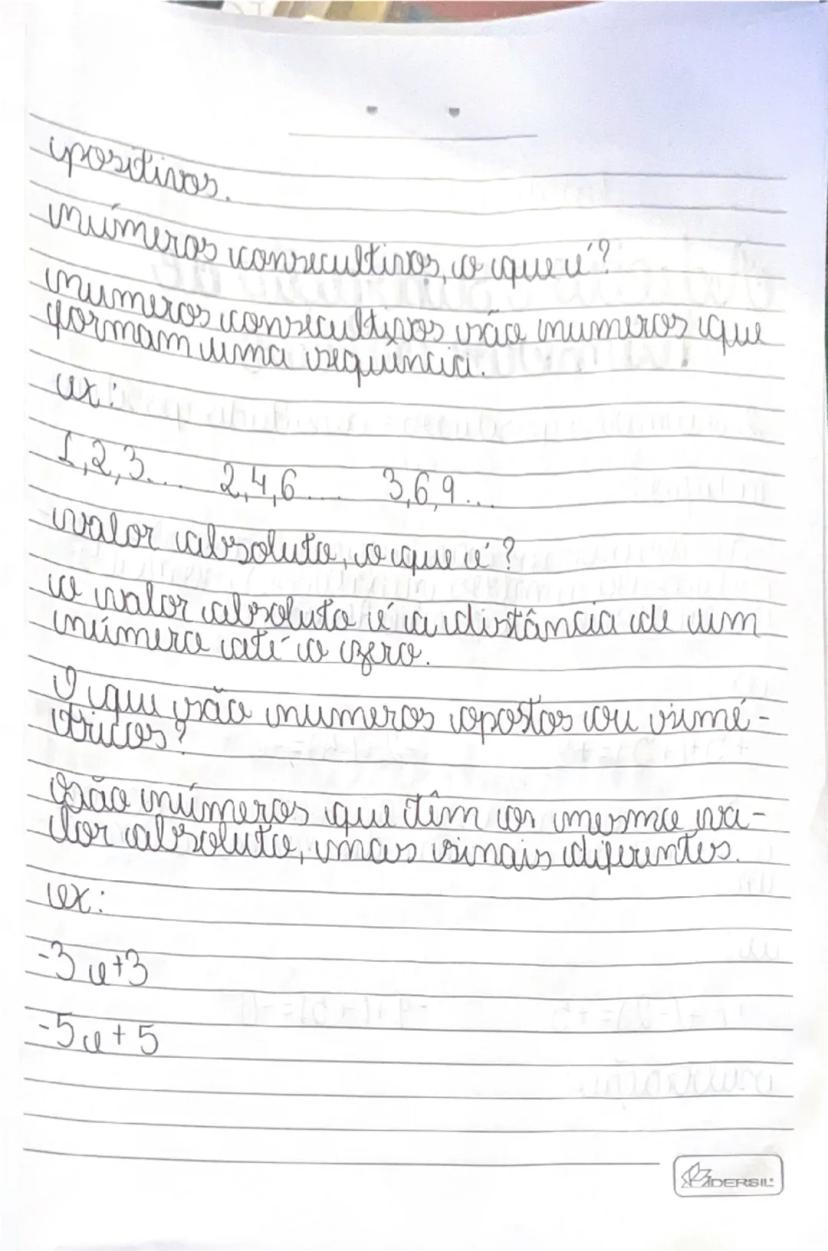 positivos.
números consecultivos, o que é?
numeros consecultivos são numeros que
formam uma sequência.
ex:
1,2,3.... 2,4,6.... 3,6,9...
valor absoluto, o que é?
o valor absoluto é a distância de um
número até o zero.
O que são numeros opostos ou simé-
tricos?
são números que têm os mesmo va-
lor absoluto, mas sinais diferentes.
ex:
-3 e +3
-5 e + 5
DERSIL